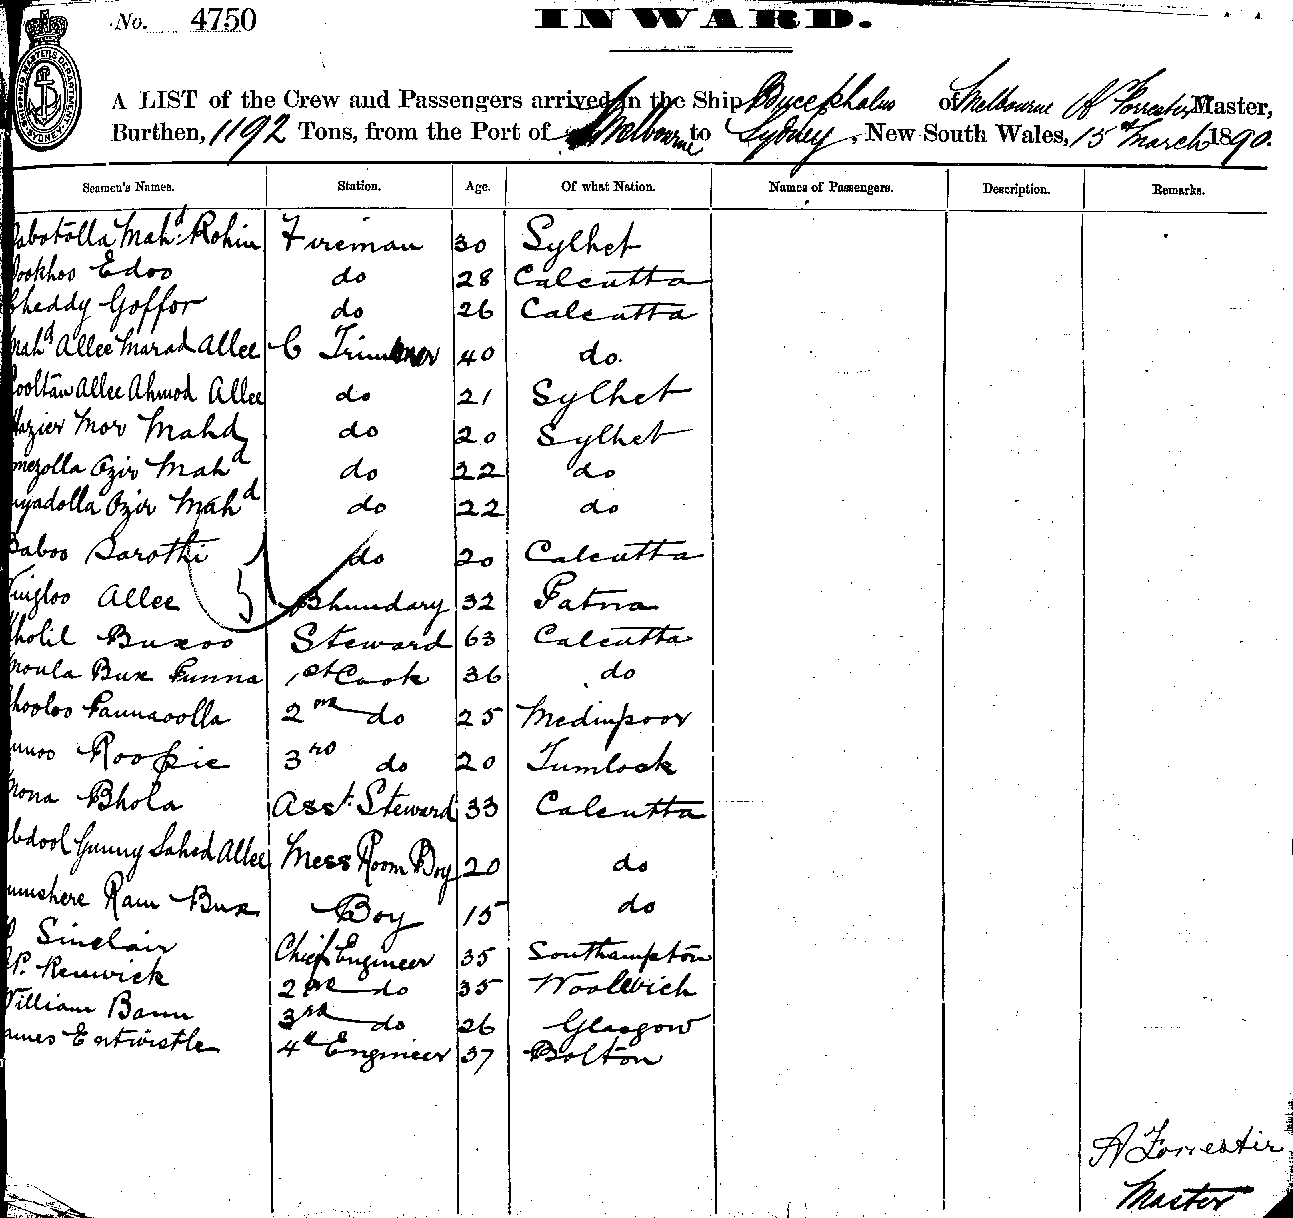 No. 4750 INWARD.
A LIST of the Crew and Passengers arrived in the Ship Bucephalus of Melbourne A Forrester Master,
Burthen, 1192 Tons, from the Port of Melbourne to Sydney, New South Wales, 15 March 1890.
Seamen's Names. Station. Age. Of what Nation. Names of Passengers. Description. Remarks.
Mahd. Rohim Fireman 30 Sylhet
Edoo do 28 Calcutta
Goffor do 26 Calcutta
Mahd Allee Marad Allee C Trimmer 40 do
Allee Ahmod Allee do 21 Sylhet
Mor Mahd do 20 Sylhet
Ozir Mahd do 22 do
Ozir Mahd do 22 do
Baboo Sarothi do 20 Calcutta
5
Allee Bhundary 32 Patna
Buxoo Steward 63 Calcutta
Moula Bux Punna 1st Cook 36 do
2nd do 25 Medinpoor
Roopie 3rd do 20 Tumlook
Mona Bhola Asst. Steward 33 Calcutta
Gunny Sahed Allee Mess Room Boy 20 do
Ram Bux Boy 15 do
Sinclair Chief Engineer 35 Southampton
Renwick 2nd do 35 Woolwich
William Bann 3rd do 26 Glasgow
Entwistle 4th Engineer 37 Bolton
A Forrester
Master